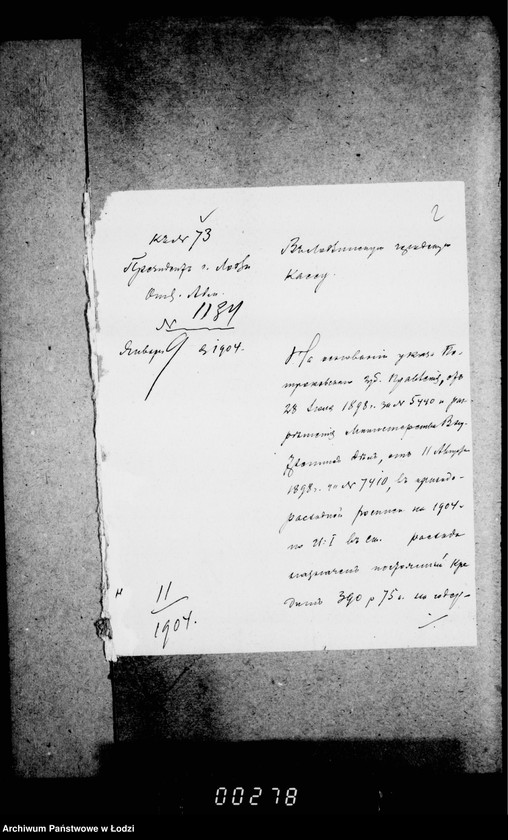 2
къ № 73
Президентъ г. Лодзи
Отд. Адм.
№ 1184
Января 9 д. 1904.
Въ Лодзинскую городскую
Кассу.
На основаніи указа Пе-
троковскаго Губ. Правленія, отъ
28 1898 г. за № 5440 и раз-
рѣшенія Министерства Вну-
треннихъ Дѣлъ, отъ 11 Августа
1898 г. за № 7410, въ приходо-
расходной росписи на 1904 г.
по Ч: I въ ст. расхода
назначенъ кре-
дитъ 390 р 75 к. на содер-
11
1904.
00278
Archiwum Państwowe w Łodzi